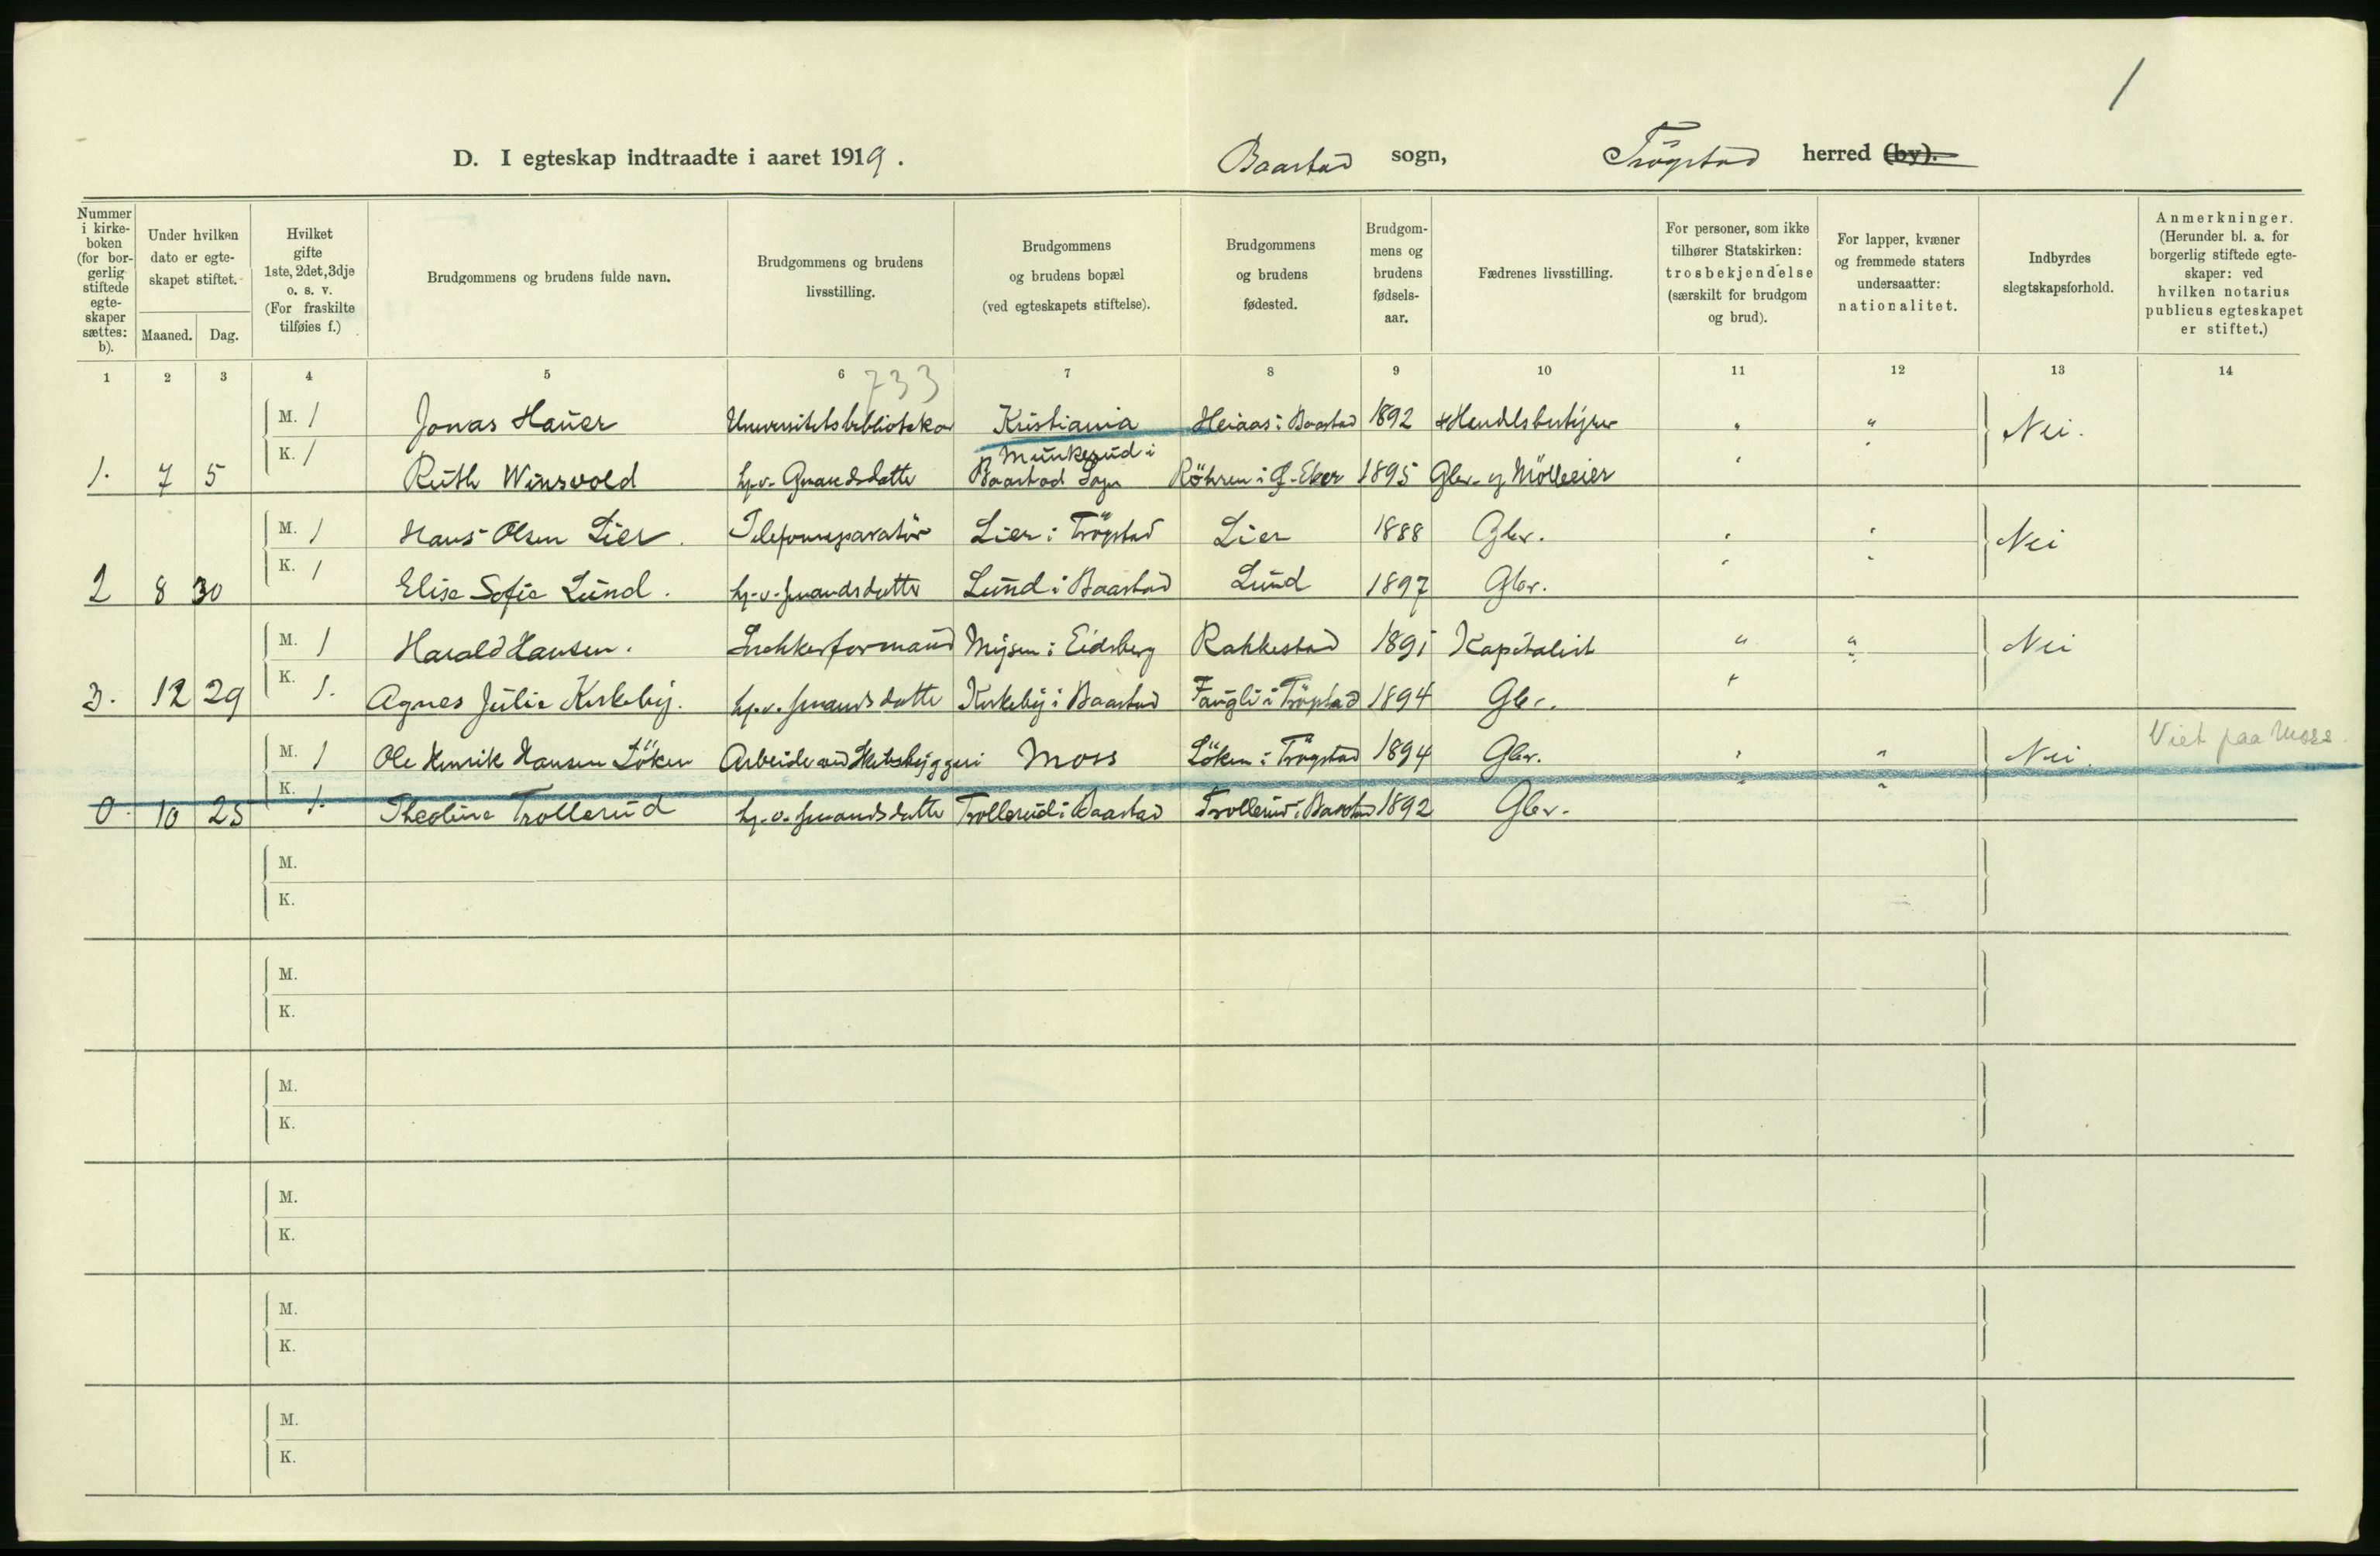 1
D. I egteskap indtraadte i aaret 1919. Baastad sogn, Trögstad herred (by).
Nummer i kirkeboken (for borgerlig stiftede egteskaper sættes: b).
Under hvilken dato er egteskapet stiftet.
Maaned. Dag.
Hvilket gifte 1ste, 2det, 3dje o. s. v. (For fraskilte tilføies f.)
Brudgommens og brudens fulde navn.
Brudgommens og brudens livsstilling.
Brudgommens og brudens bopæl (ved egteskapets stiftelse).
Brudgommens og brudens fødested.
Brudgommens og brudens fødselsaar.
Fædrenes livsstilling.
For personer, som ikke tilhører Statskirken: trosbekjendelse (særskilt for brudgom og brud).
For lapper, kvæner og fremmede staters undersaatter: nationalitet.
Indbyrdes slegtskapsforhold.
Anmerkninger. (Herunder bl. a. for borgerlig stiftede egteskaper: ved hvilken notarius publicus egteskapet er stiftet.)
1 2 3 4 5 6 7 8 9 10 11 12 13 14
733
M. 1 Jonas Hauer Universitetsbibliotekar Kristiania Heiaas i Baastad 1892 Handelsbestyrer " " Nei.
Munkerud i
1. 7 5 K. 1 Ruth Winsvold hj.v. Gmandsdatter Baastad Sogn Röhren i Ö. Eker 1895 Gbr. og Mölleeier "
M. 1 Hans Olsen Lier. Telefonreparatör Lier i Trögstad Lier 1888 Gbr. " " Nei
2 8 30 K. 1 Elise Sofie Lund. hj.v. gmandsdatter Lund i Baastad Lund 1897 Gbr. " "
M. 1 Harald Hansen. Snekkerformand Mysen i Eidsberg Rakkestad 1891 Kapitalist " " Nei
3. 12 29 K. 1. Agnes Julie Kirkeby. hj.v. gmandsdatter Kirkeby i Baastad i Trögstad 1894 Gbr. " "
M. 1 Ole Henrik Hansen Löken Arbeider ved Skibsbyggeri Moss Löken i Trögstad 1894 Gbr. " " Nei. Viet paa Moss.
0. 10 25 K. 1. Theoline Trollerud hj.v. gmandsdatter Trollerud i Baastad Trollerud i Baastad 1892 Gbr. " "
M.
K.
M.
K.
M.
K.
M.
K.
M.
K.
M.
K.